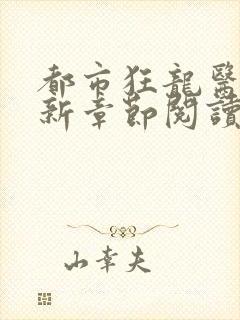 都市狂龍醫
新章節閱讀
山幸夫